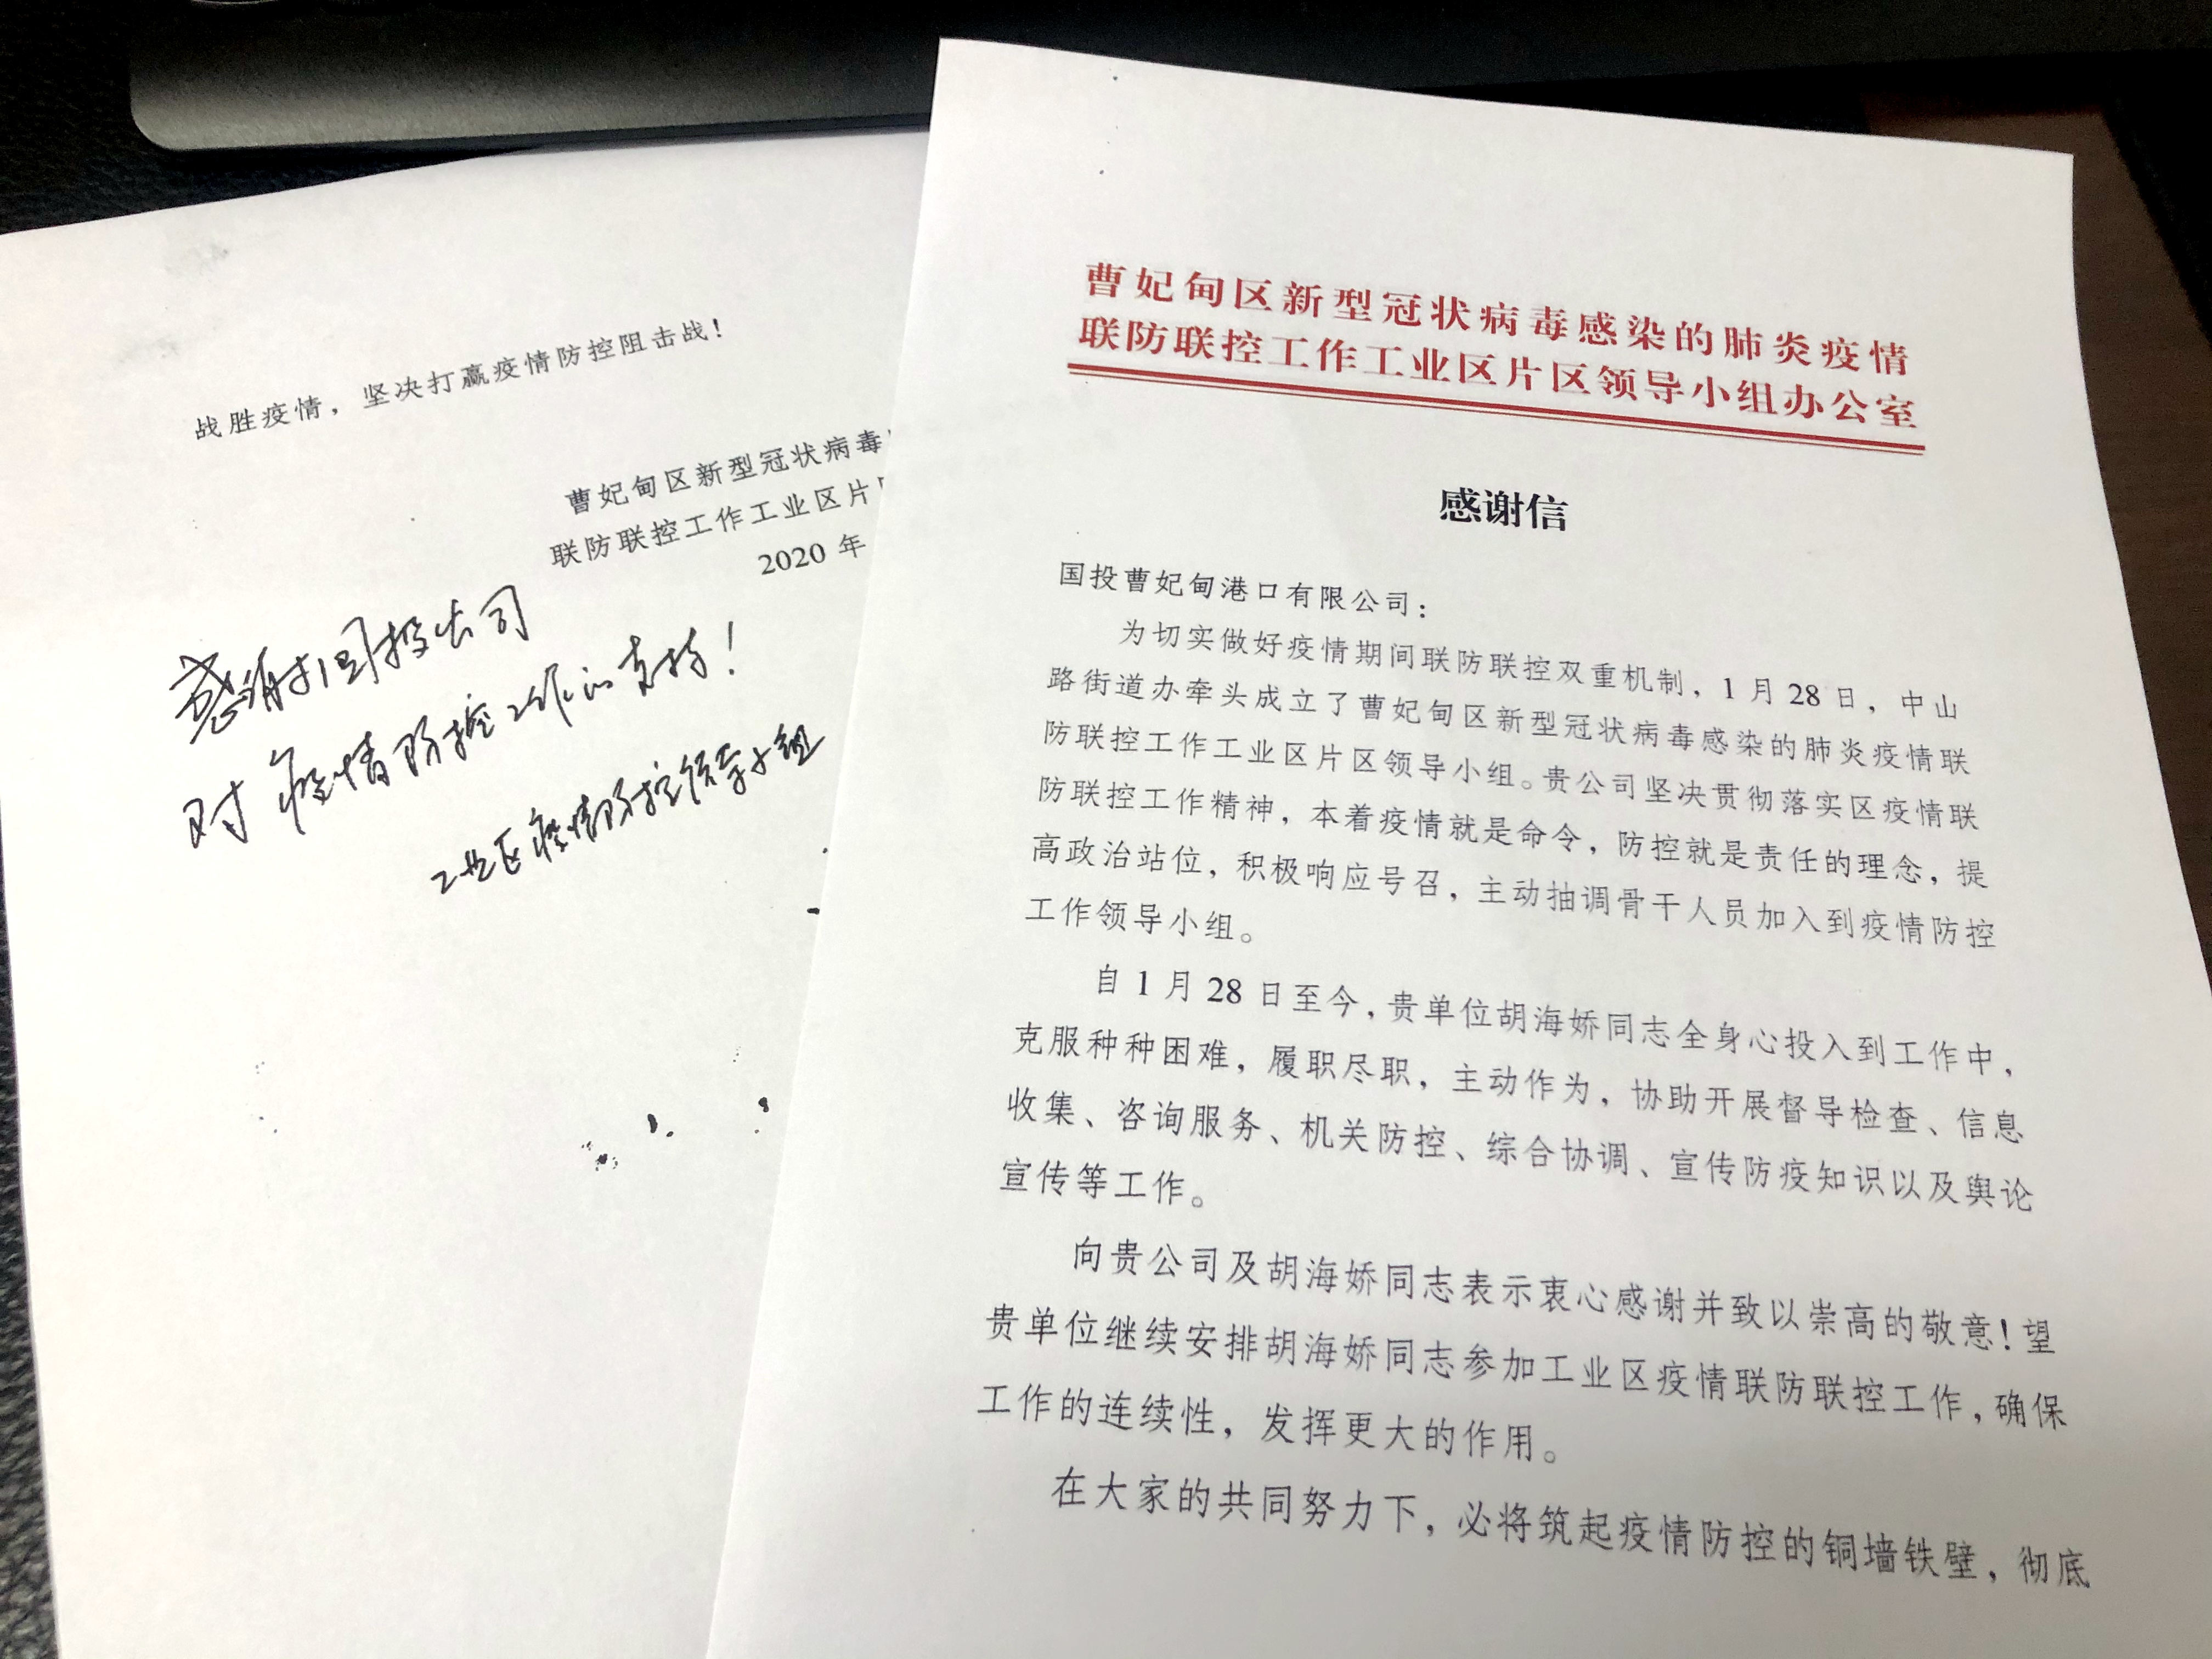 曹妃甸区新型冠状病毒感染的肺炎疫情
联防联控工作工业区片区领导小组办公室
感谢信
国投曹妃甸港口有限公司：
为切实做好疫情期间联防联控双重机制，1月28日，中山
路街道办牵头成立了曹妃甸区新型冠状病毒感染的肺炎疫情联
防联控工作工业区片区领导小组。贵公司坚决贯彻落实区疫情联
防联控工作精神，本着疫情就是命令，防控就是责任的理念，提
高政治站位，积极响应号召，主动抽调骨干人员加入到疫情防控
工作领导小组。
自1月28日至今，贵单位胡海娇同志全身心投入到工作中，
克服种种困难，履职尽职，主动作为，协助开展督导检查、信息
收集、咨询服务、机关防控、综合协调、宣传防疫知识以及舆论
宣传等工作。
向贵公司及胡海娇同志表示衷心感谢并致以崇高的敬意！望
贵单位继续安排胡海娇同志参加工业区疫情联防联控工作，确保
工作的连续性，发挥更大的作用。
在大家的共同努力下，必将筑起疫情防控的铜墙铁壁，彻底
战胜疫情，坚决打赢疫情防控阻击战！
曹妃甸区新型冠状病毒
联防联控工作工业区片
2020 年
感谢国投公司
对疫情防控工作的支持！
工业区疫情防控领导小组